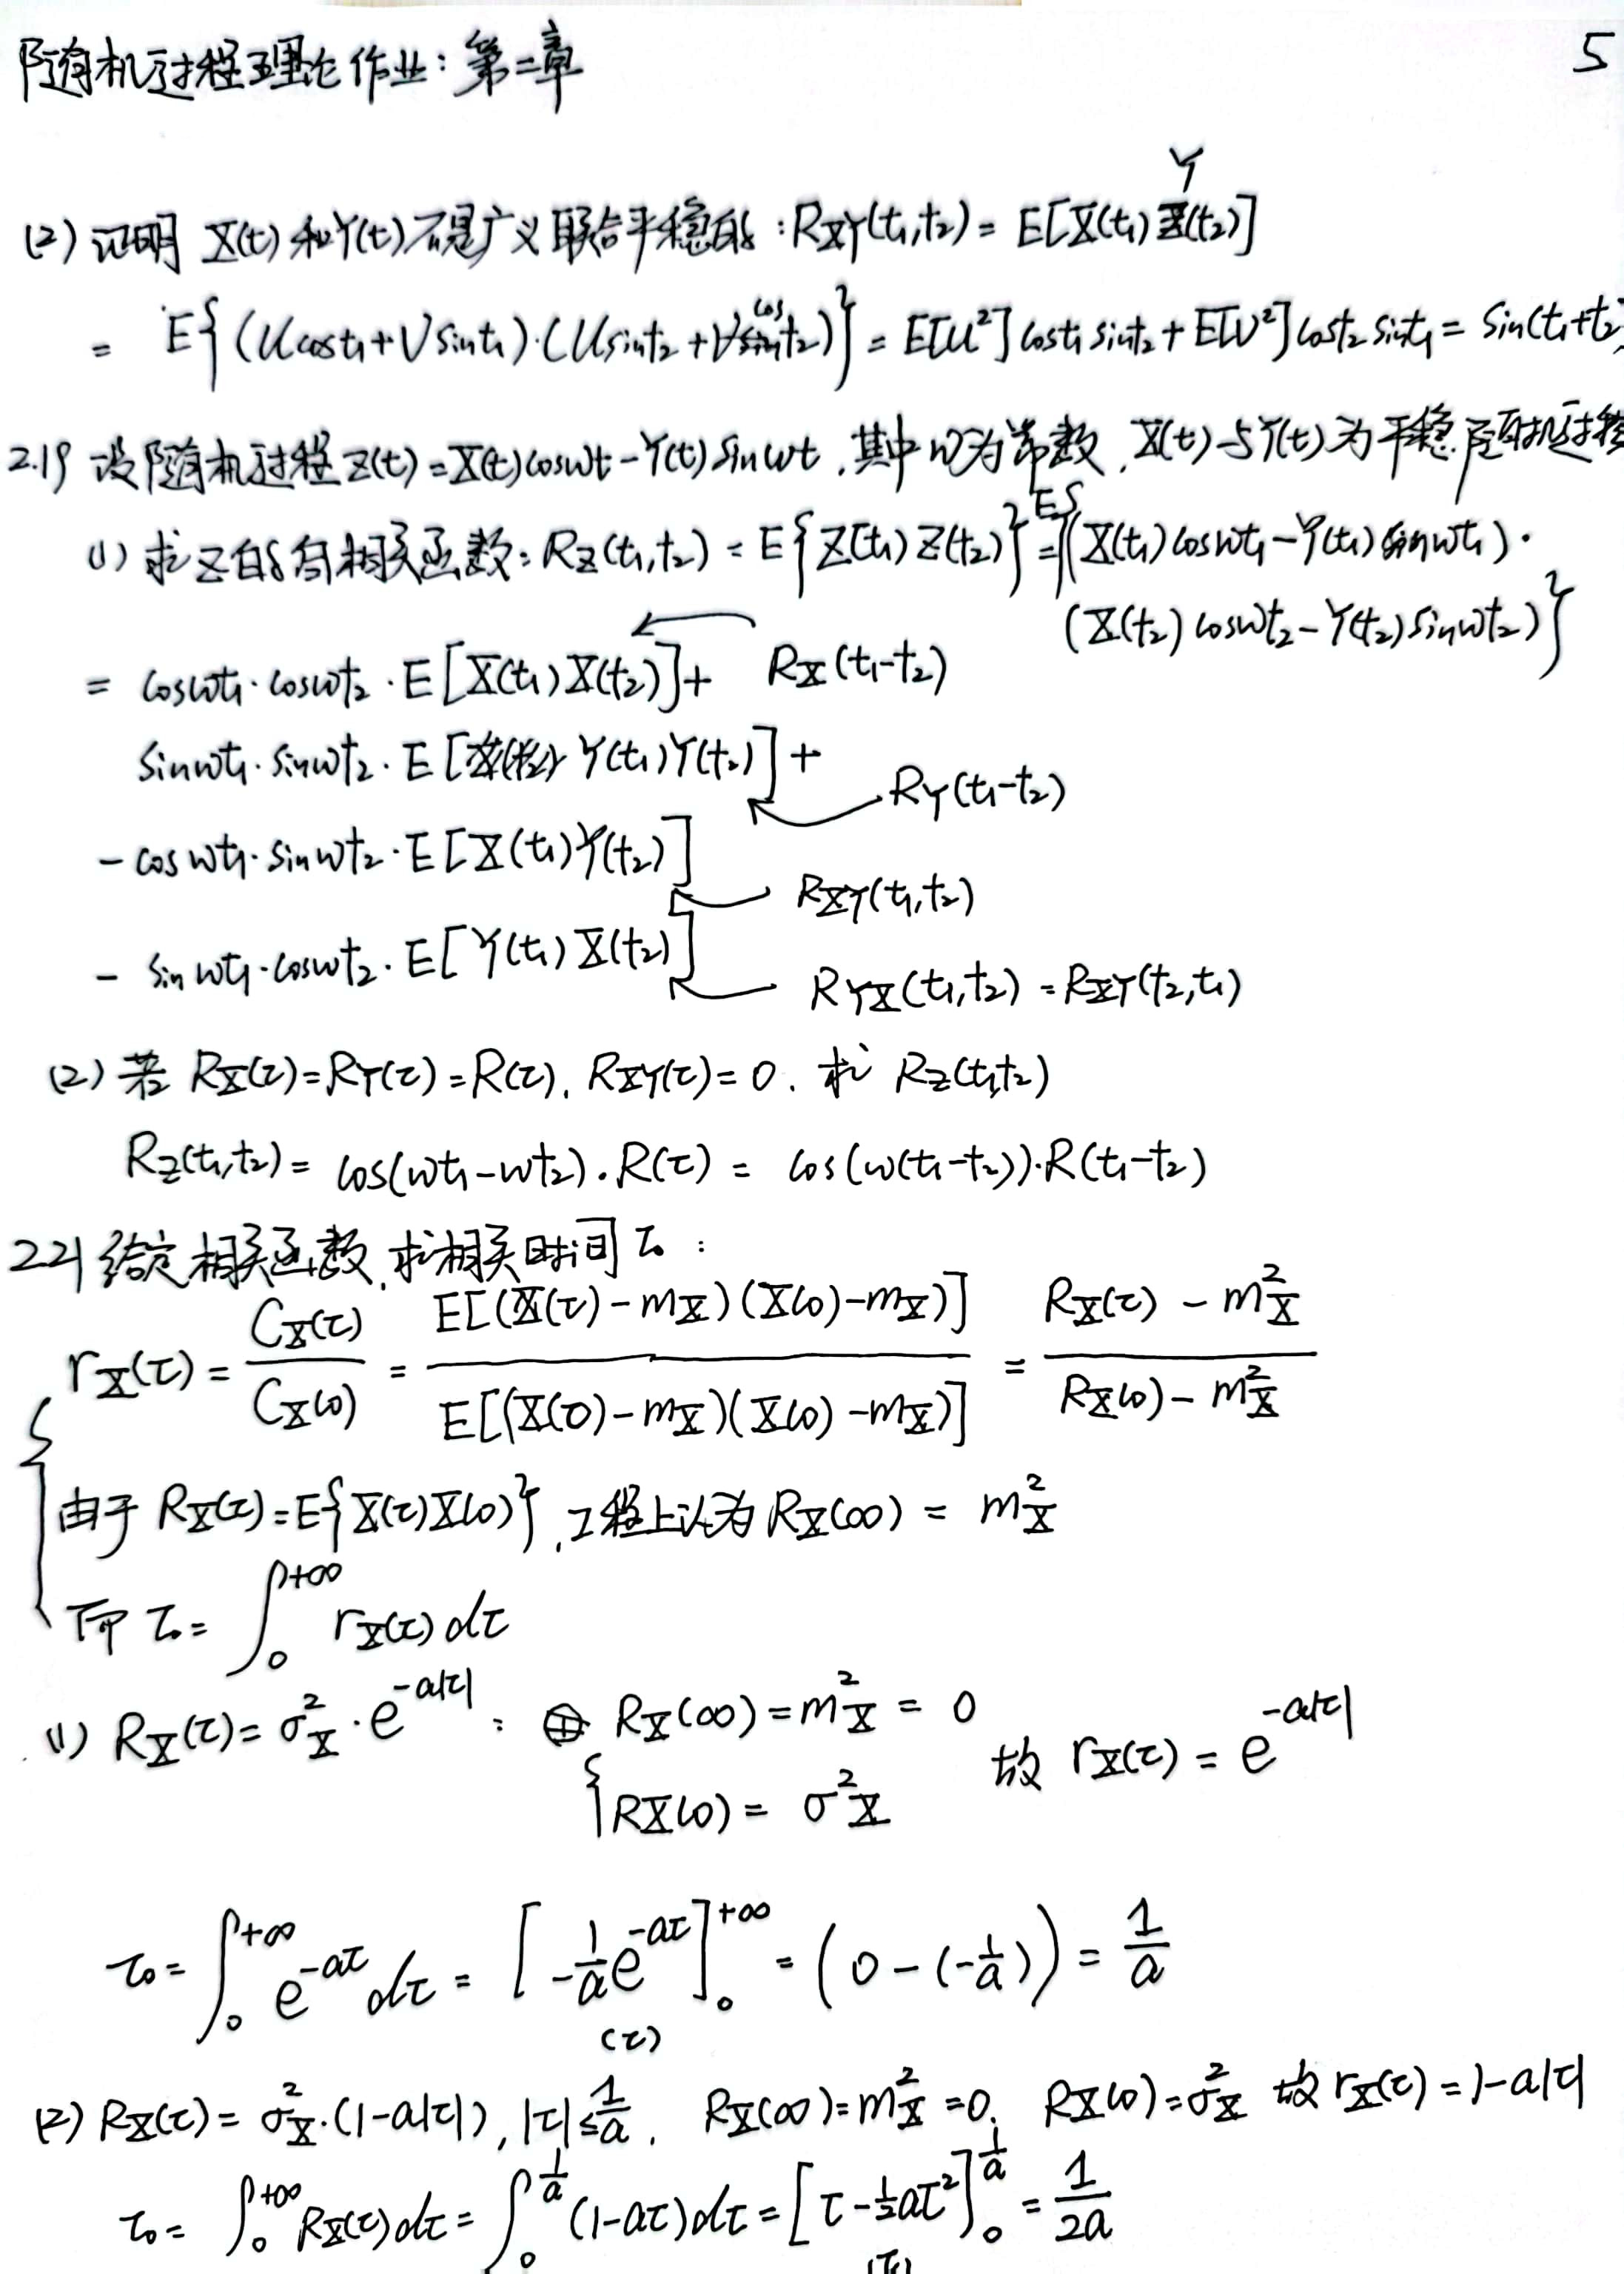 随机过程理论作业：第二章
5
(2) 证明 X(t) 和 Y(t) 不是广义联合平稳的：R_XY(t₁,t₂) = E[X(t₁) Y(t₂)]
= E{(Ucost₁+Vsint₁)·(Usint₂+Vcost₂)} = E[U²]cost₁sint₂+E[V²]cost₂sint₁ = Sin(t₁+t₂)
2.19 设随机过程Z(t)=X(t)coswt-Y(t)sinwt，其中w为常数，X(t)与Y(t)为平稳随机过程
(1) 求Z的自相关函数：R_Z(t₁,t₂) = E{Z(t₁)Z(t₂)} = E{(X(t₁)coswt₁-Y(t₁)sinwt₁)·
(X(t₂)coswt₂-Y(t₂)sinwt₂)}
= coswt₁·coswt₂·E[X(t₁)X(t₂)]+ R_X(t₁-t₂)
sinwt₁·sinwt₂·E[Y(t₁)Y(t₂)]+
R_Y(t₁-t₂)
-coswt₁·sinwt₂·E[X(t₁)Y(t₂)]
R_XY(t₁,t₂)
- sinwt₁·coswt₂·E[Y(t₁)X(t₂)]
R_YX(t₁,t₂) = R_XY(t₂,t₁)
(2) 若 R_X(τ)=R_Y(τ)=R(τ), R_XY(τ)=0. 求 R_Z(t₁,t₂)
R_Z(t₁,t₂) = cos(wt₁-wt₂)·R(τ) = cos(w(t₁-t₂))·R(t₁-t₂)
2.21 给定相关函数，求相关时间 τ₀：
r_X(τ) = C_X(τ)/C_X(0) = E[(X(τ)-m_X)(X(0)-m_X)]/E[(X(0)-m_X)(X(0)-m_X)] = (R_X(τ)-m²_X)/(R_X(0)-m²_X)
由于 R_X(τ)=E{X(τ)X(0)}，工程上认为 R_X(∞) = m²_X
而 τ₀ = ∫₀^{+∞} r_X(τ)dτ
(1) R_X(τ) = σ²_X·e^{-a|τ|}： R_X(∞)=m²_X = 0
故 r_X(τ) = e^{-a|τ|}
R_X(0) = σ²_X
τ₀ = ∫₀^{+∞} e^{-aτ}dτ = [-1/a e^{-aτ}]₀^{+∞} = (0-(-1/a)) = 1/a
(τ)
(2) R_X(τ) = σ²_X·(1-a|τ|), |τ|≤1/a. R_X(∞)=m²_X=0. R_X(0)=σ²_X 故 r_X(τ)=1-a|τ|
τ₀ = ∫₀^{+∞} R_X(τ)dτ = ∫₀^{1/a}(1-aτ)dτ = [τ-½aτ²]₀^{1/a} = 1/2a
(τ)